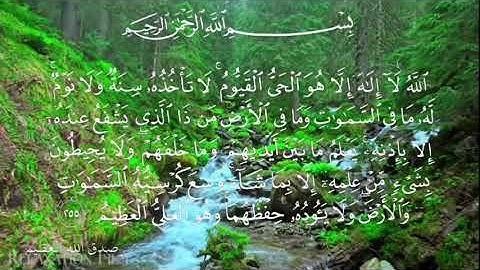 بِسْمِ اللَّهِ الرَّحْمَٰنِ الرَّحِيمِ
اللَّهُ لَا إِلَٰهَ إِلَّا هُوَ الْحَيُّ الْقَيُّومُ ۚ لَا تَأْخُذُهُ سِنَةٌ وَلَا نَوْمٌ ۚ
لَهُ مَا فِي السَّمَٰوَٰتِ وَمَا فِي الْأَرْضِ ۗ مَن ذَا الَّذِي يَشْفَعُ عِندَهُ
إِلَّا بِإِذْنِهِ ۚ يَعْلَمُ مَا بَيْنَ أَيْدِيهِمْ وَمَا خَلْفَهُمْ ۖ وَلَا يُحِيطُونَ
بِشَيْءٍ مِّنْ عِلْمِهِ إِلَّا بِمَا شَاءَ ۚ وَسِعَ كُرْسِيُّهُ السَّمَٰوَٰتِ
وَالْأَرْضَ ۖ وَلَا يَئُودُهُ حِفْظُهُمَا ۚ وَهُوَ الْعَلِيُّ الْعَظِيمُ ٢٥٥
صدق الله العظيم